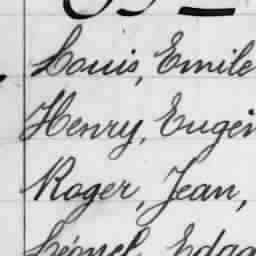 Louis, Emile
Henry, Eugèn
Roger, Jean,
Léonel, Edga